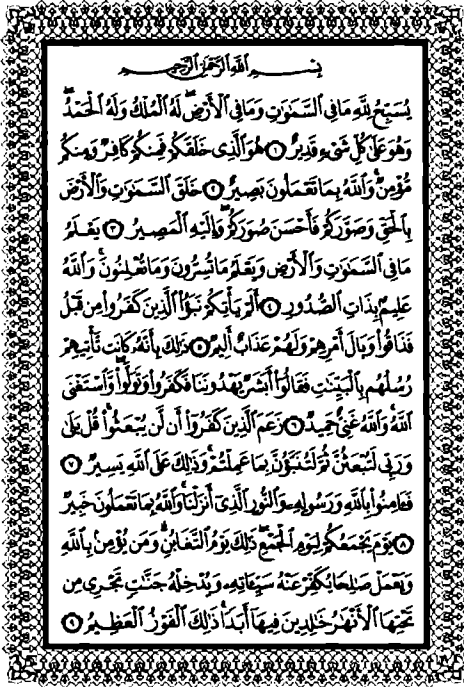 بِسْمِ اللَّهِ الرَّحْمَٰنِ الرَّحِيمِ
يُسَبِّحُ لِلَّهِ مَا فِي السَّمَٰوَٰتِ وَمَا فِي الْأَرْضِ ۖ لَهُ الْمُلْكُ وَلَهُ الْحَمْدُ ۖ
وَهُوَ عَلَىٰ كُلِّ شَيْءٍ قَدِيرٌ ١ هُوَ الَّذِي خَلَقَكُمْ فَمِنكُمْ كَافِرٌ وَمِنكُم
مُّؤْمِنٌ ۚ وَاللَّهُ بِمَا تَعْمَلُونَ بَصِيرٌ ٢ خَلَقَ السَّمَٰوَٰتِ وَالْأَرْضَ
بِالْحَقِّ وَصَوَّرَكُمْ فَأَحْسَنَ صُوَرَكُمْ ۖ وَإِلَيْهِ الْمَصِيرُ ٣ يَعْلَمُ
مَا فِي السَّمَٰوَٰتِ وَالْأَرْضِ وَيَعْلَمُ مَا تُسِرُّونَ وَمَا تُعْلِنُونَ ۚ وَاللَّهُ
عَلِيمٌ بِذَاتِ الصُّدُورِ ٤ أَلَمْ يَأْتِكُمْ نَبَؤُا الَّذِينَ كَفَرُوا مِن قَبْلُ
فَذَاقُوا وَبَالَ أَمْرِهِمْ وَلَهُمْ عَذَابٌ أَلِيمٌ ٥ ذَٰلِكَ بِأَنَّهُ كَانَت تَّأْتِيهِمْ
رُسُلُهُم بِالْبَيِّنَٰتِ فَقَالُوا أَبَشَرٌ يَهْدُونَنَا فَكَفَرُوا وَتَوَلَّوا ۚ وَّاسْتَغْنَى
اللَّهُ ۚ وَاللَّهُ غَنِيٌّ حَمِيدٌ ٦ زَعَمَ الَّذِينَ كَفَرُوا أَن لَّن يُبْعَثُوا ۚ قُلْ بَلَىٰ
وَرَبِّي لَتُبْعَثُنَّ ثُمَّ لَتُنَبَّؤُنَّ بِمَا عَمِلْتُمْ ۚ وَذَٰلِكَ عَلَى اللَّهِ يَسِيرٌ ٧
فَـَٔامِنُوا بِاللَّهِ وَرَسُولِهِ وَالنُّورِ الَّذِي أَنزَلْنَا ۚ وَاللَّهُ بِمَا تَعْمَلُونَ خَبِيرٌ
٨ يَوْمَ يَجْمَعُكُمْ لِيَوْمِ الْجَمْعِ ۖ ذَٰلِكَ يَوْمُ التَّغَابُنِ ۗ وَمَن يُؤْمِن بِاللَّهِ
وَيَعْمَلْ صَٰلِحًا يُكَفِّرْ عَنْهُ سَيِّـَٔاتِهِ وَيُدْخِلْهُ جَنَّٰتٍ تَجْرِي مِن
تَحْتِهَا الْأَنْهَٰرُ خَٰلِدِينَ فِيهَا أَبَدًا ۚ ذَٰلِكَ الْفَوْزُ الْعَظِيمُ ٩